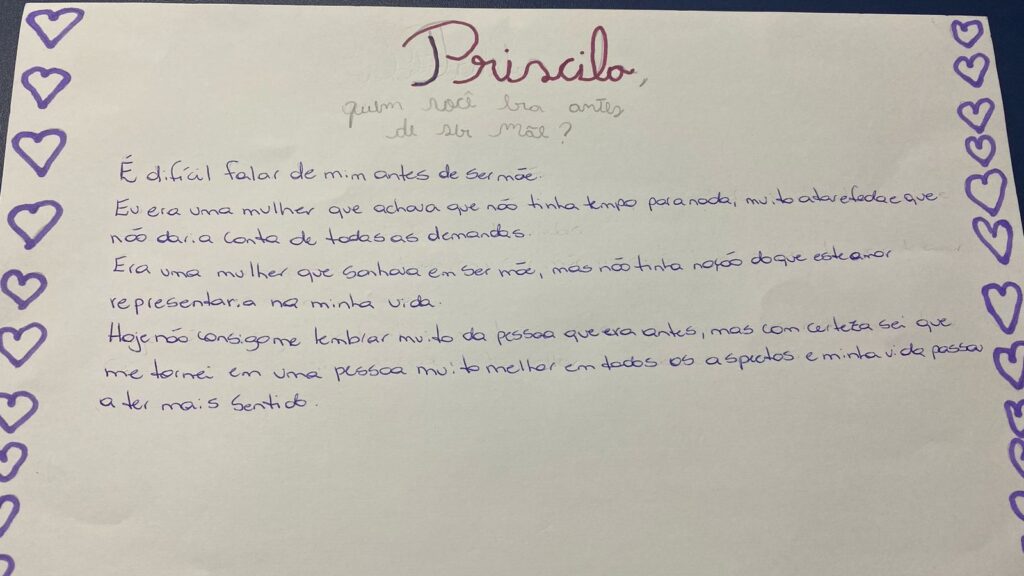 Priscila,
quem você era antes
de ser mãe?
É difícil falar de mim antes de ser mãe.
Eu era uma mulher que achava que não tinha tempo para nada, muito atarefada e que
não daria conta de todas as demandas.
Era uma mulher que sonhava em ser mãe, mas não tinha noção do que este amor
representaria na minha vida.
Hoje não consigo me lembrar muito da pessoa que era antes, mas com certeza sei que
me tornei em uma pessoa muito melhor em todos os aspectos e minha vida passou
a ter mais sentido.